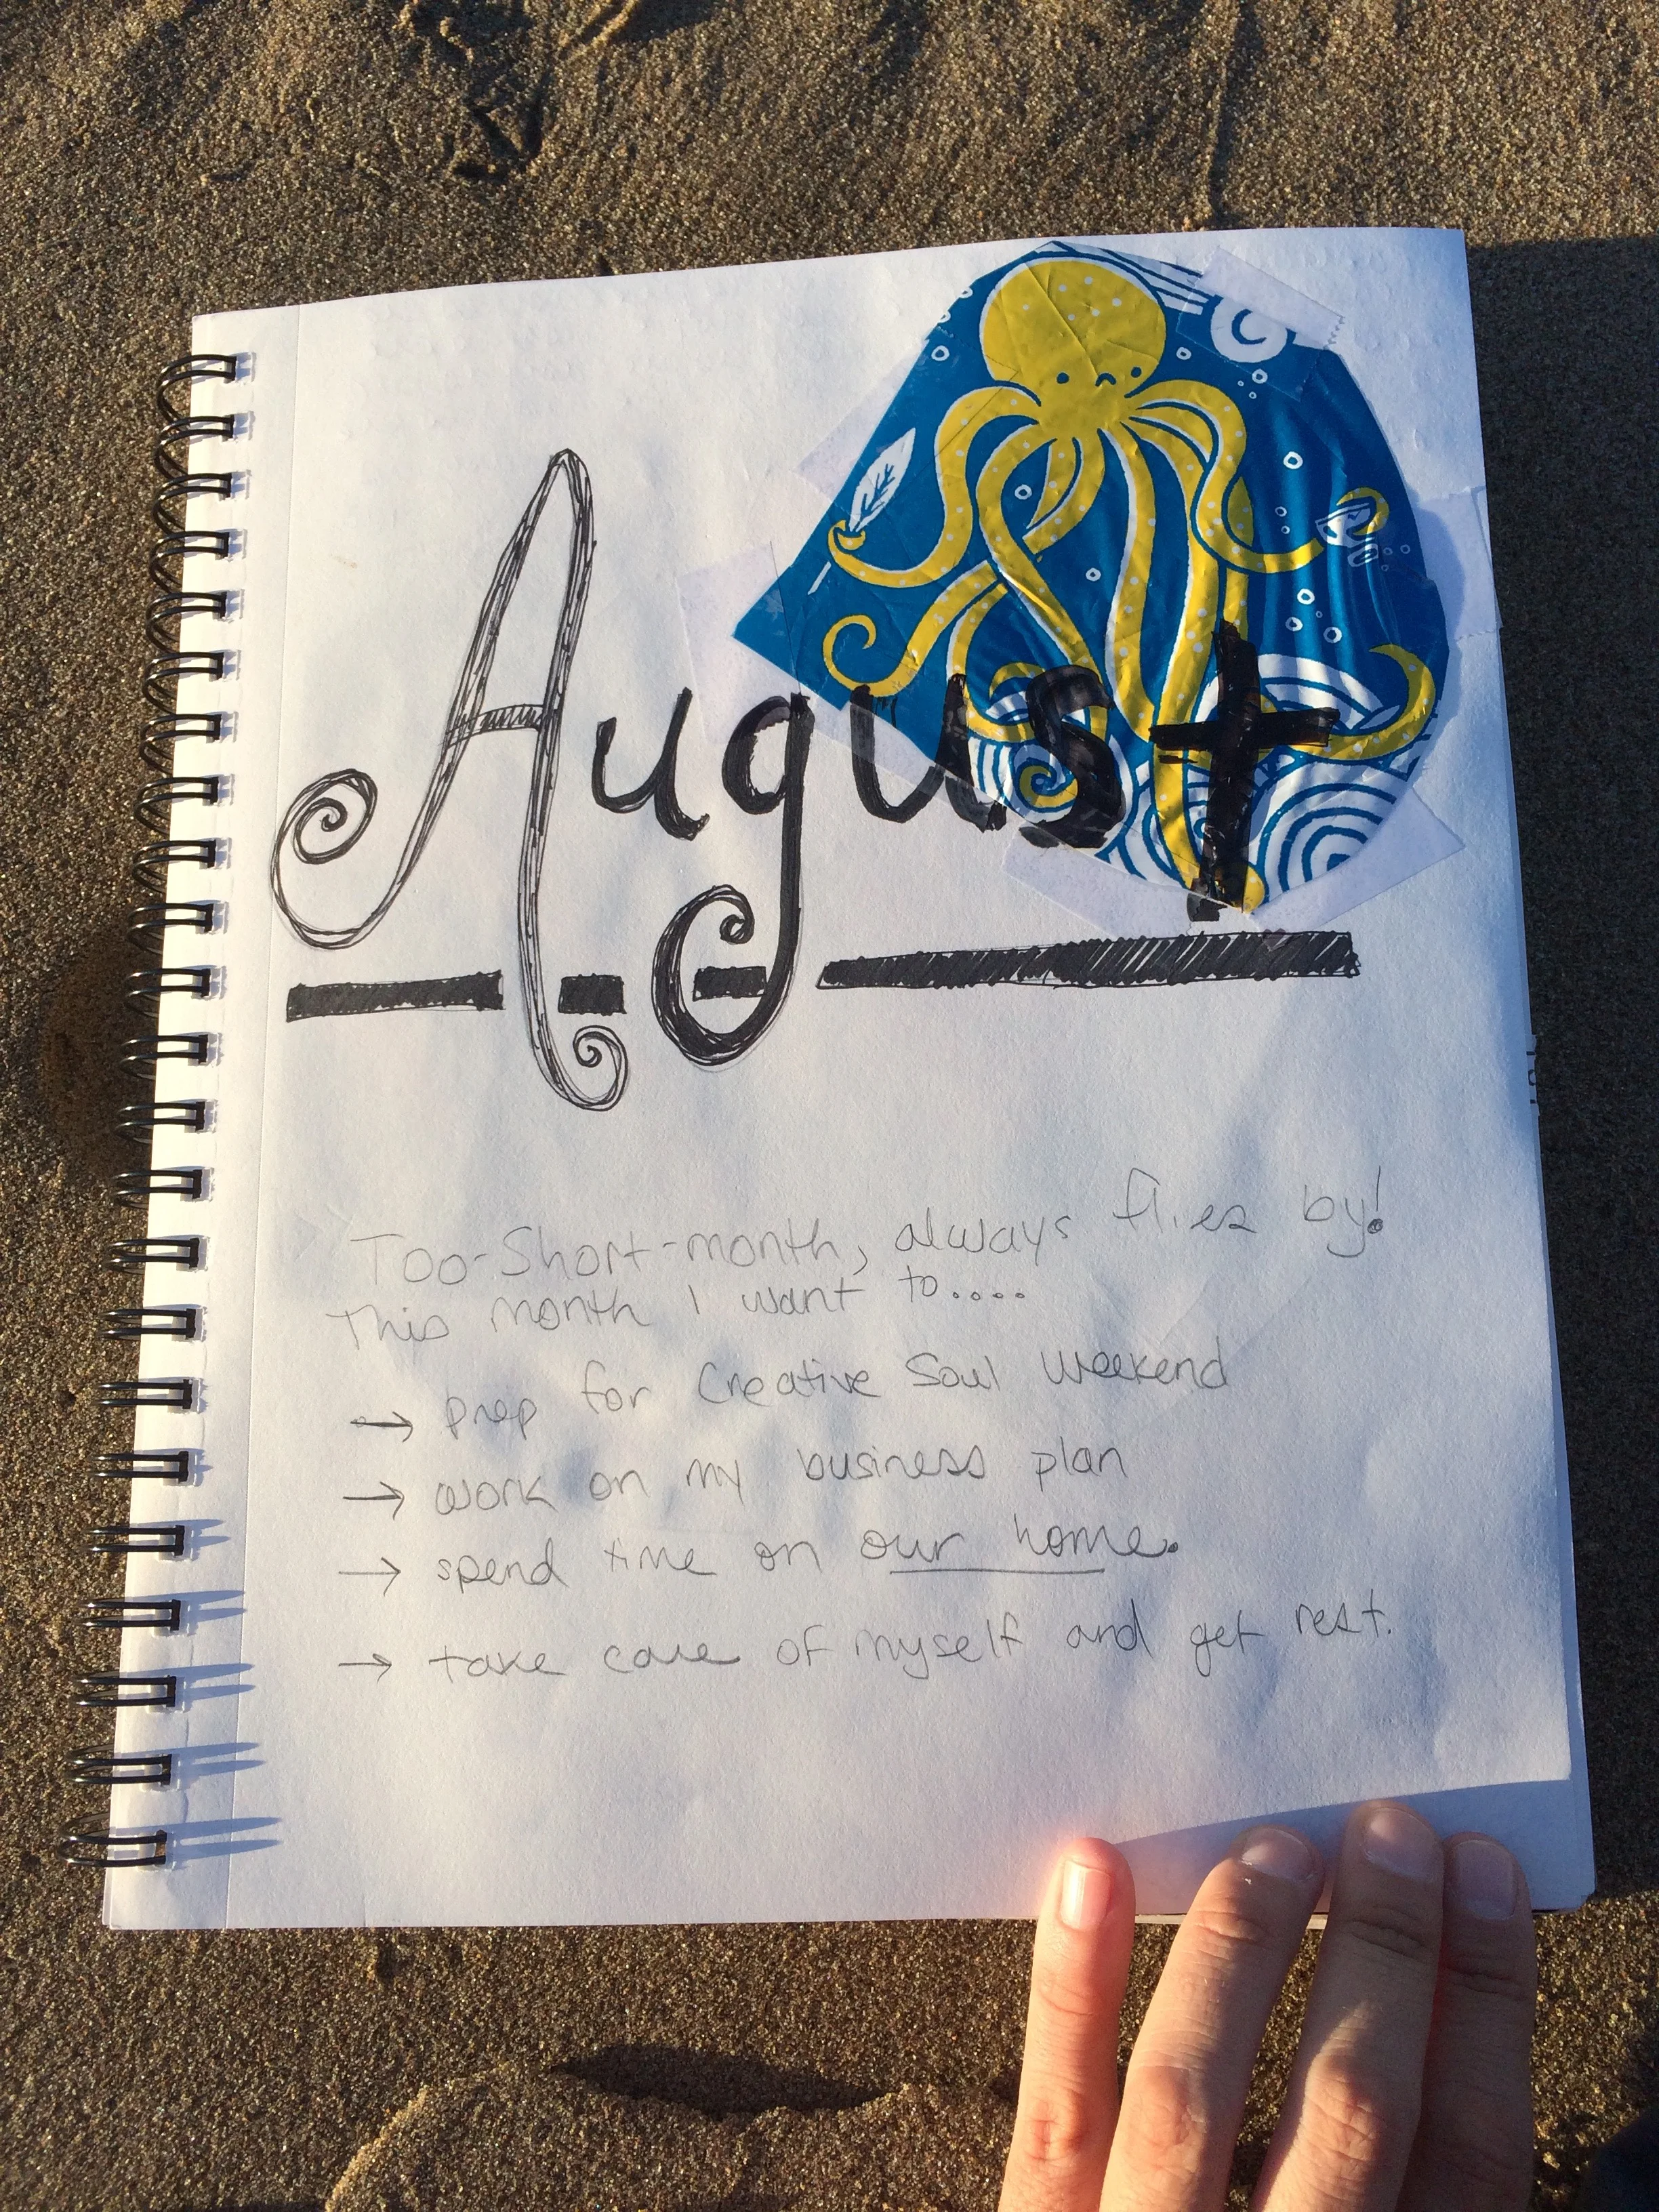 August
Too-Short-month, always flies by!
This month I want to....
→ prep for Creative Soul Weekend
→ work on my business plan
→ spend time on our home.
→ take care of myself and get rest.